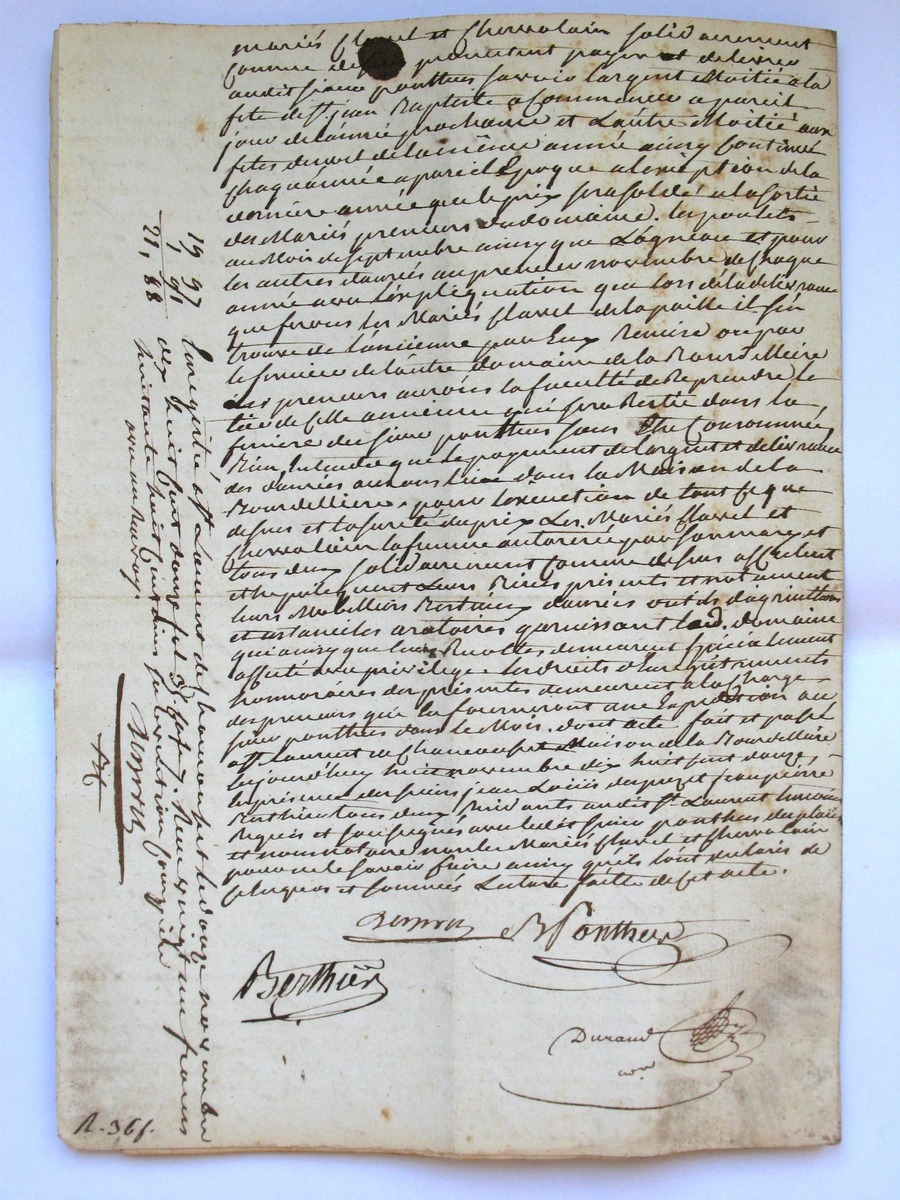 mariés Claret et Chevrolain solidairement
comme dessus promettent payer et delivrer
audit sieur ponthus savoir l'argent Moitié a la
fete de St. jean Baptiste a Commencer a pareil
jour de l'année prochaine et L'autre Moitié aux
fetes de noel de la même année ainsy Continué
chaque année a pareille Epoque a l'exception de la
derniere année que le prix sera soldé a la sortie
des Mariés preneurs du domaine. les poulets
au Mois de septembre ainsy que L'agneau et pour
les autres danrées au premier novembre de chaque
année avec l'explication que lors de la delivrance
que feront les Mariés Claret de la paille il s'en
trouve de l'ancienne par Eux Remise ou par
le fermier de l'autre domaine de la Bourdelliere
Les preneurs auront la faculté de Reprendre la
de celle ancienne qui sera Restée dans la
du sieur ponthus sans
Bien Entendu que le payement de l'argent et delivrance
des danrées auront lieu dans la Maison de la
Bourdelliere, pour l'execution de tout ce que
dessus et la sureté du prix Les Mariés Claret et
Chevrolain la femme autorisée par son mary et
tous deux solidairement comme dessus affectent
et hypotequent Leurs Biens présents et notament
leurs Mobilliers Bestiaux danrées outils d'agriculture
et ustanciles aratoires garnissant Led. domaine
qui ainsy que les Recoltes demeurent spécialement
affecté avec privilege. les droits d'Enregistrements
honnoraires des présentes demeurent a la Charge
des preneurs qui En fourniront une Expedition au
sieur ponthus dans le Mois. dont acte fait et passé
a St Laurent de Chamousset Maison de la Bourdelliere
le jourd'huy huit novembre dix huit cent douze,
En présence des sieurs jean Louis dupuy et jean pierre
Berthier tous deux audit St. Laurent temoins
Requis et soussignés avec ledit sieur ponthus
et nous notaire non les Mariés Claret et Chevrolain
pour ne le savoir faire ainsy qu'ils l'ont declaré de
ce Enquis et sommés Lecture faitte de cet acte.
BPonthus
Berthier
Durand
nre
Enregistré a St Laurent de chamousset le douze novembre
dix huit cent douze fol. 33 Recu vingt un francs
huitante huit centimes subvention comprise
19 97
1 91
21, 88
R. 36 f.